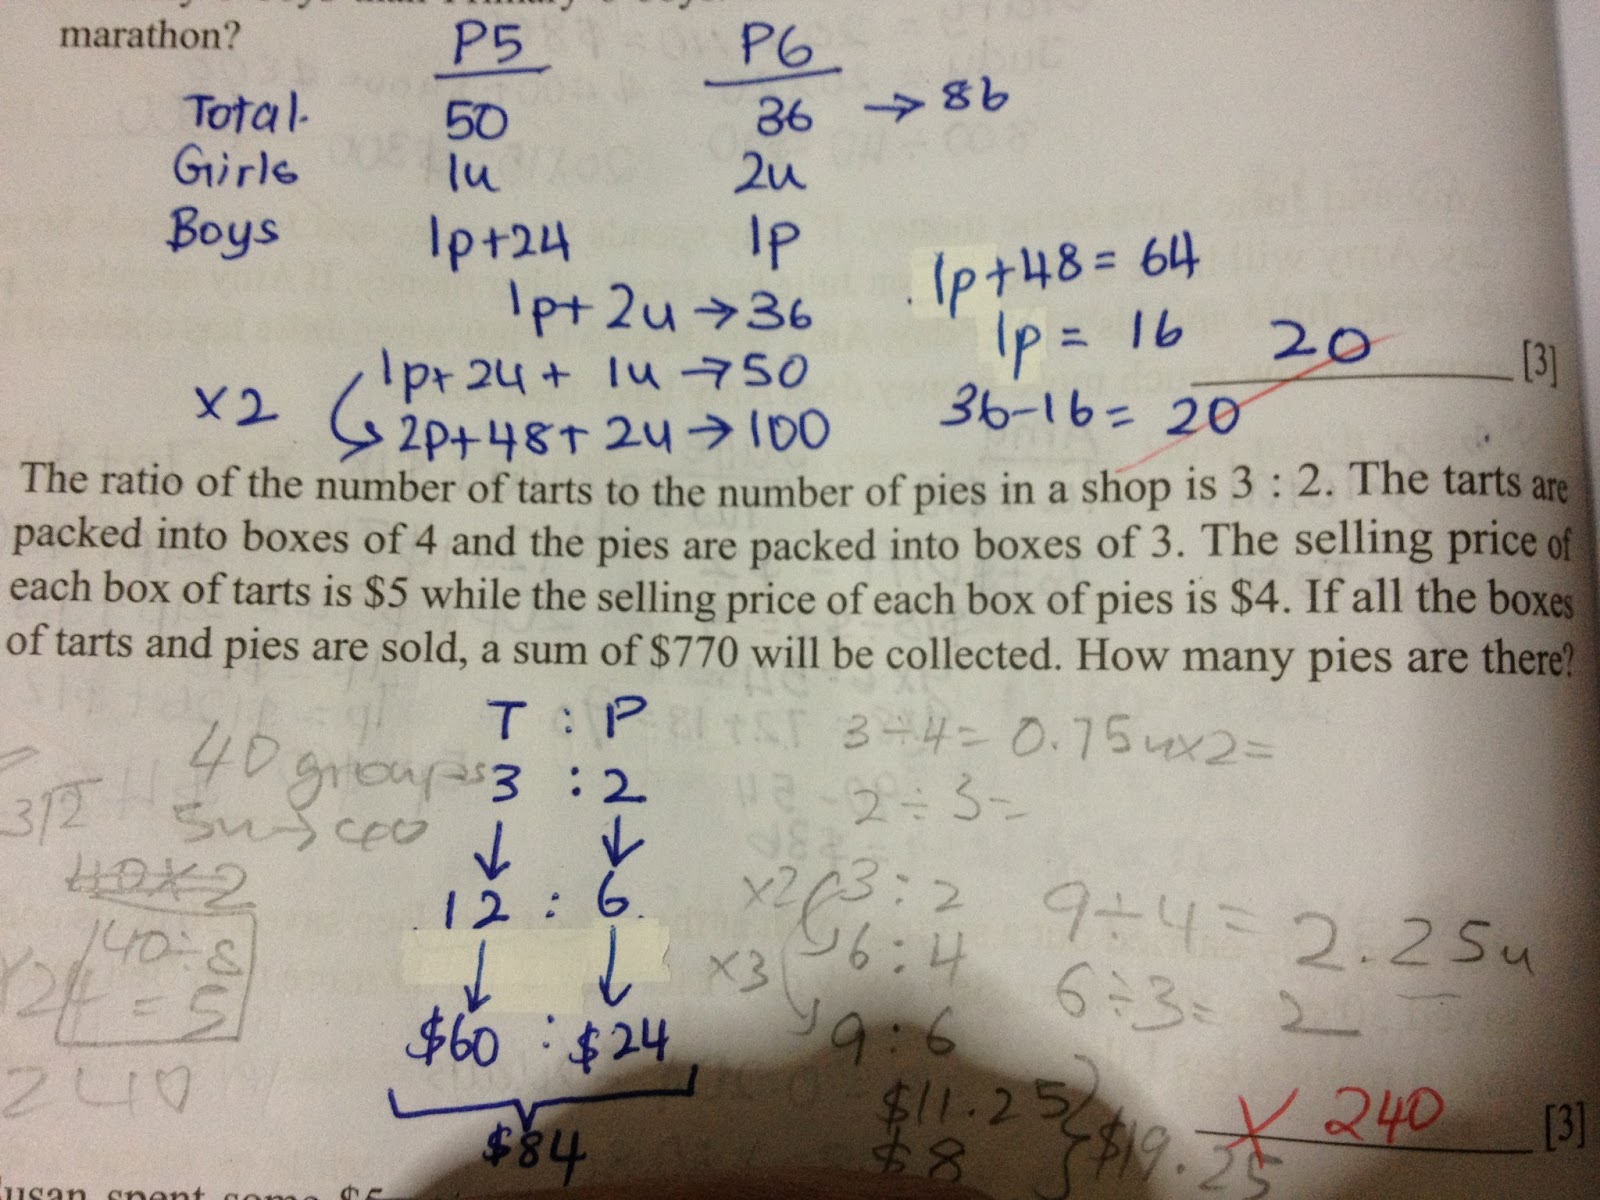 marathon?
P5 P6
Total. 50 36 → 86
Girls 1u 2u
Boys 1p+24 1p
1p+48 = 64
1p+ 2u → 36
1p = 16
20 [3]
1p+24 + 1u → 50
×2
36-16 = 20
2p+48+ 2u → 100
The ratio of the number of tarts to the number of pies in a shop is 3 : 2. The tarts are
packed into boxes of 4 and the pies are packed into boxes of 3. The selling price of
each box of tarts is $5 while the selling price of each box of pies is $4. If all the boxes
of tarts and pies are sold, a sum of $770 will be collected. How many pies are there?
T : P
3÷4= 0.75u×2=
40 groups
3 : 2
2÷3=
5u→
40×2
×2 3:2
12 : 6
9÷4= 2.25u
140÷8
6:4
×3
= 5
6÷3= 2
$60 : $24
9:6
240
$11.25
× 240
[3]
$84
$8
$19.25
Susan spent some